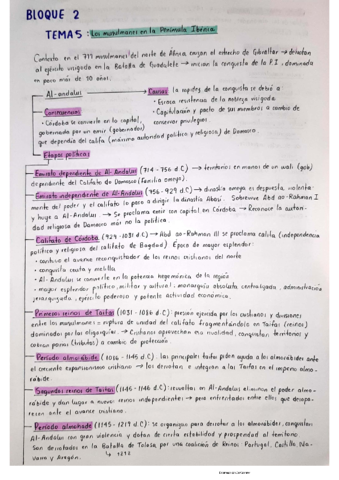 BLOQUE 2
TEMA 5: Los musulmanes en la Península Ibérica
Contexto: en el 711 musulmanes del norte de África cruzan el estrecho de Gibraltar → derrotan
al ejército visigodo en la Batalla de Guadalete → inician la conquista de la P.I, dominada
en poco más de 10 años.
Al-andalus
Causas la rapidez de la conquista se debe a
• Escasa resistencia de la nobleza visigoda
• Capitulación y pacto de sus miembros a cambio de
conservar privilegios
Consecuencias
• Córdoba se convierte en la capital,
gobernada por un emir (gobernador)
que dependía del califa (máxima autoridad política y religiosa) de Damasco
Etapas políticas
Emirato dependiente de Al-Andalus (714 - 756 d.C) → territorios en manos de un walí (gob)
dependiente del Califato de Damasco (familia omeya)
Emirato independiente de Al-Andalus (756 - 929 d.C) → dinastía omeya es depuesta violenta-
mente del poder y el califato lo pasa a dirigir la dinastía Abasí. Sobrevive Abd ao-Rahman I
y huye a Al-Andalus. → Se proclama emir con capital en Córdoba → Reconoce la autori-
dad religiosa de Damasco más no la política.
Califato de Córdoba (929 - 1031 d.C) → Abd ao-Rahman III se proclama califa (independencia
política y religiosa del califato de Bagdad) Época de mayor esplendor:
• contuvo el avance reconquistador de los reinos cristianos del norte
• conquista ceuta y melilla
• Al-Andalus se convierte en la potencia hegemónica de la región
• mayor esplendor político, militar y cultural: monarquía absoluta, centralizada, administración
jerarquizada, ejército poderoso y potente actividad económica.
Primeros reinos de Taifas (1031 - 1086 d.C): presión ejercida por los cristianos y divisiones
entre los musulmanes → ruptura de unidad del califato fragmentándolo en Taifas (reinos)
dominados por las oligarquías → Cristianos aprovechan esa rivalidad, conquistan territorios y
cobran parias (tributos) a cambio de protección.
Período almorávide (1086 - 1145 d.C): las principales taifas piden ayuda a los almorávides ante
el creciente expansionismo cristiano → los derrotan e integran a las Taifas en el imperio almo-
rávide.
Segundos reinos de Taifas (1145 - 1146 d.C): revueltas en Al-Andalus eliminan el poder almo-
rávide y dan lugar a nuevos reinos independientes → pero enfrentados entre ellos que desapa-
recen ante el avance cristiano.
Período almohade (1195 - 1219 d.C): se organizan para derrotar a los almorávides, conquistan
Al-Andalus con gran violencia y dotan de cierta estabilidad y prosperidad al territorio
Son derrotados en la Batalla de Tolosa por una coalición de Reinos: Portugal, Castilla, Na-
varra y Aragón.
↳ 1212